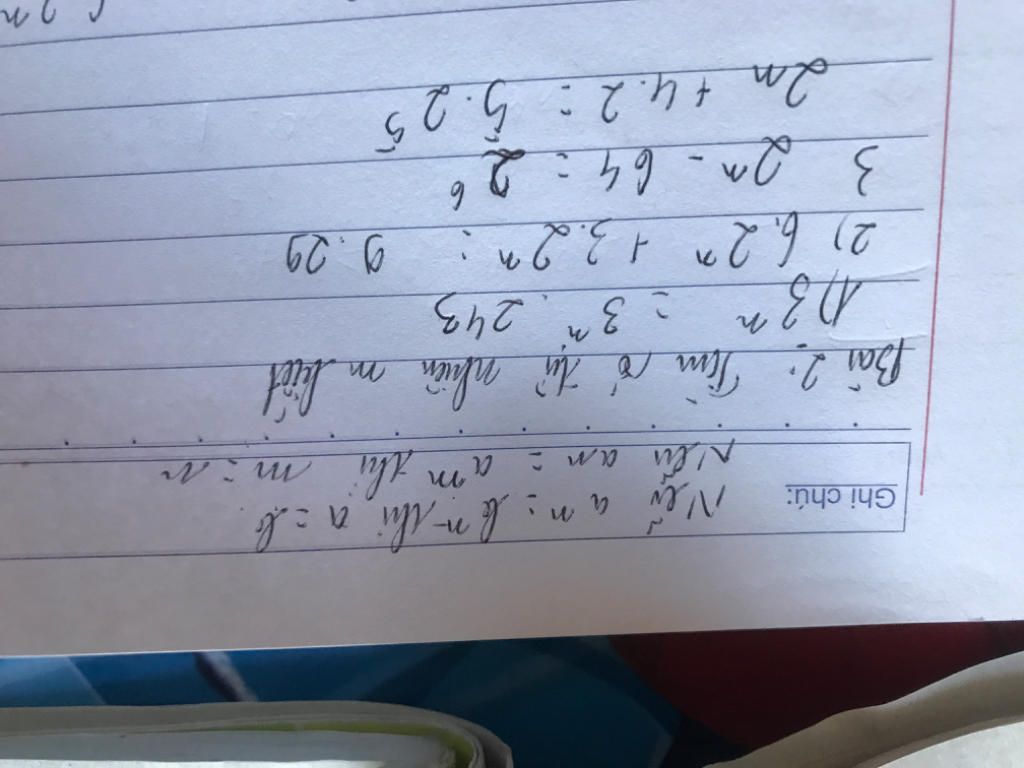 Ghi chú: Nếu aⁿ = bⁿ thì a = b.
Nếu aⁿ = aᵐ thì m = n
Bài 2: Tìm số tự nhiên n biết
1) 3ⁿ = 3ⁿ . 243
2) 6.2ⁿ + 3.2ⁿ = 9.29
3 2ⁿ - 64 = 2⁶
2ⁿ + 4.2 = 5.2⁵